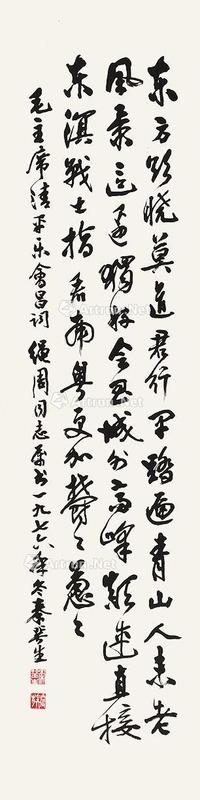 东方欲晓莫道君行早踏遍青山人未老
风景这边獨好会昌城外高峰颠连直接
东溟战士指看南粤更加郁々葱々
毛主席清平乐會昌词 绳周同志属书一九七六年冬秦咢生
Artron.Net